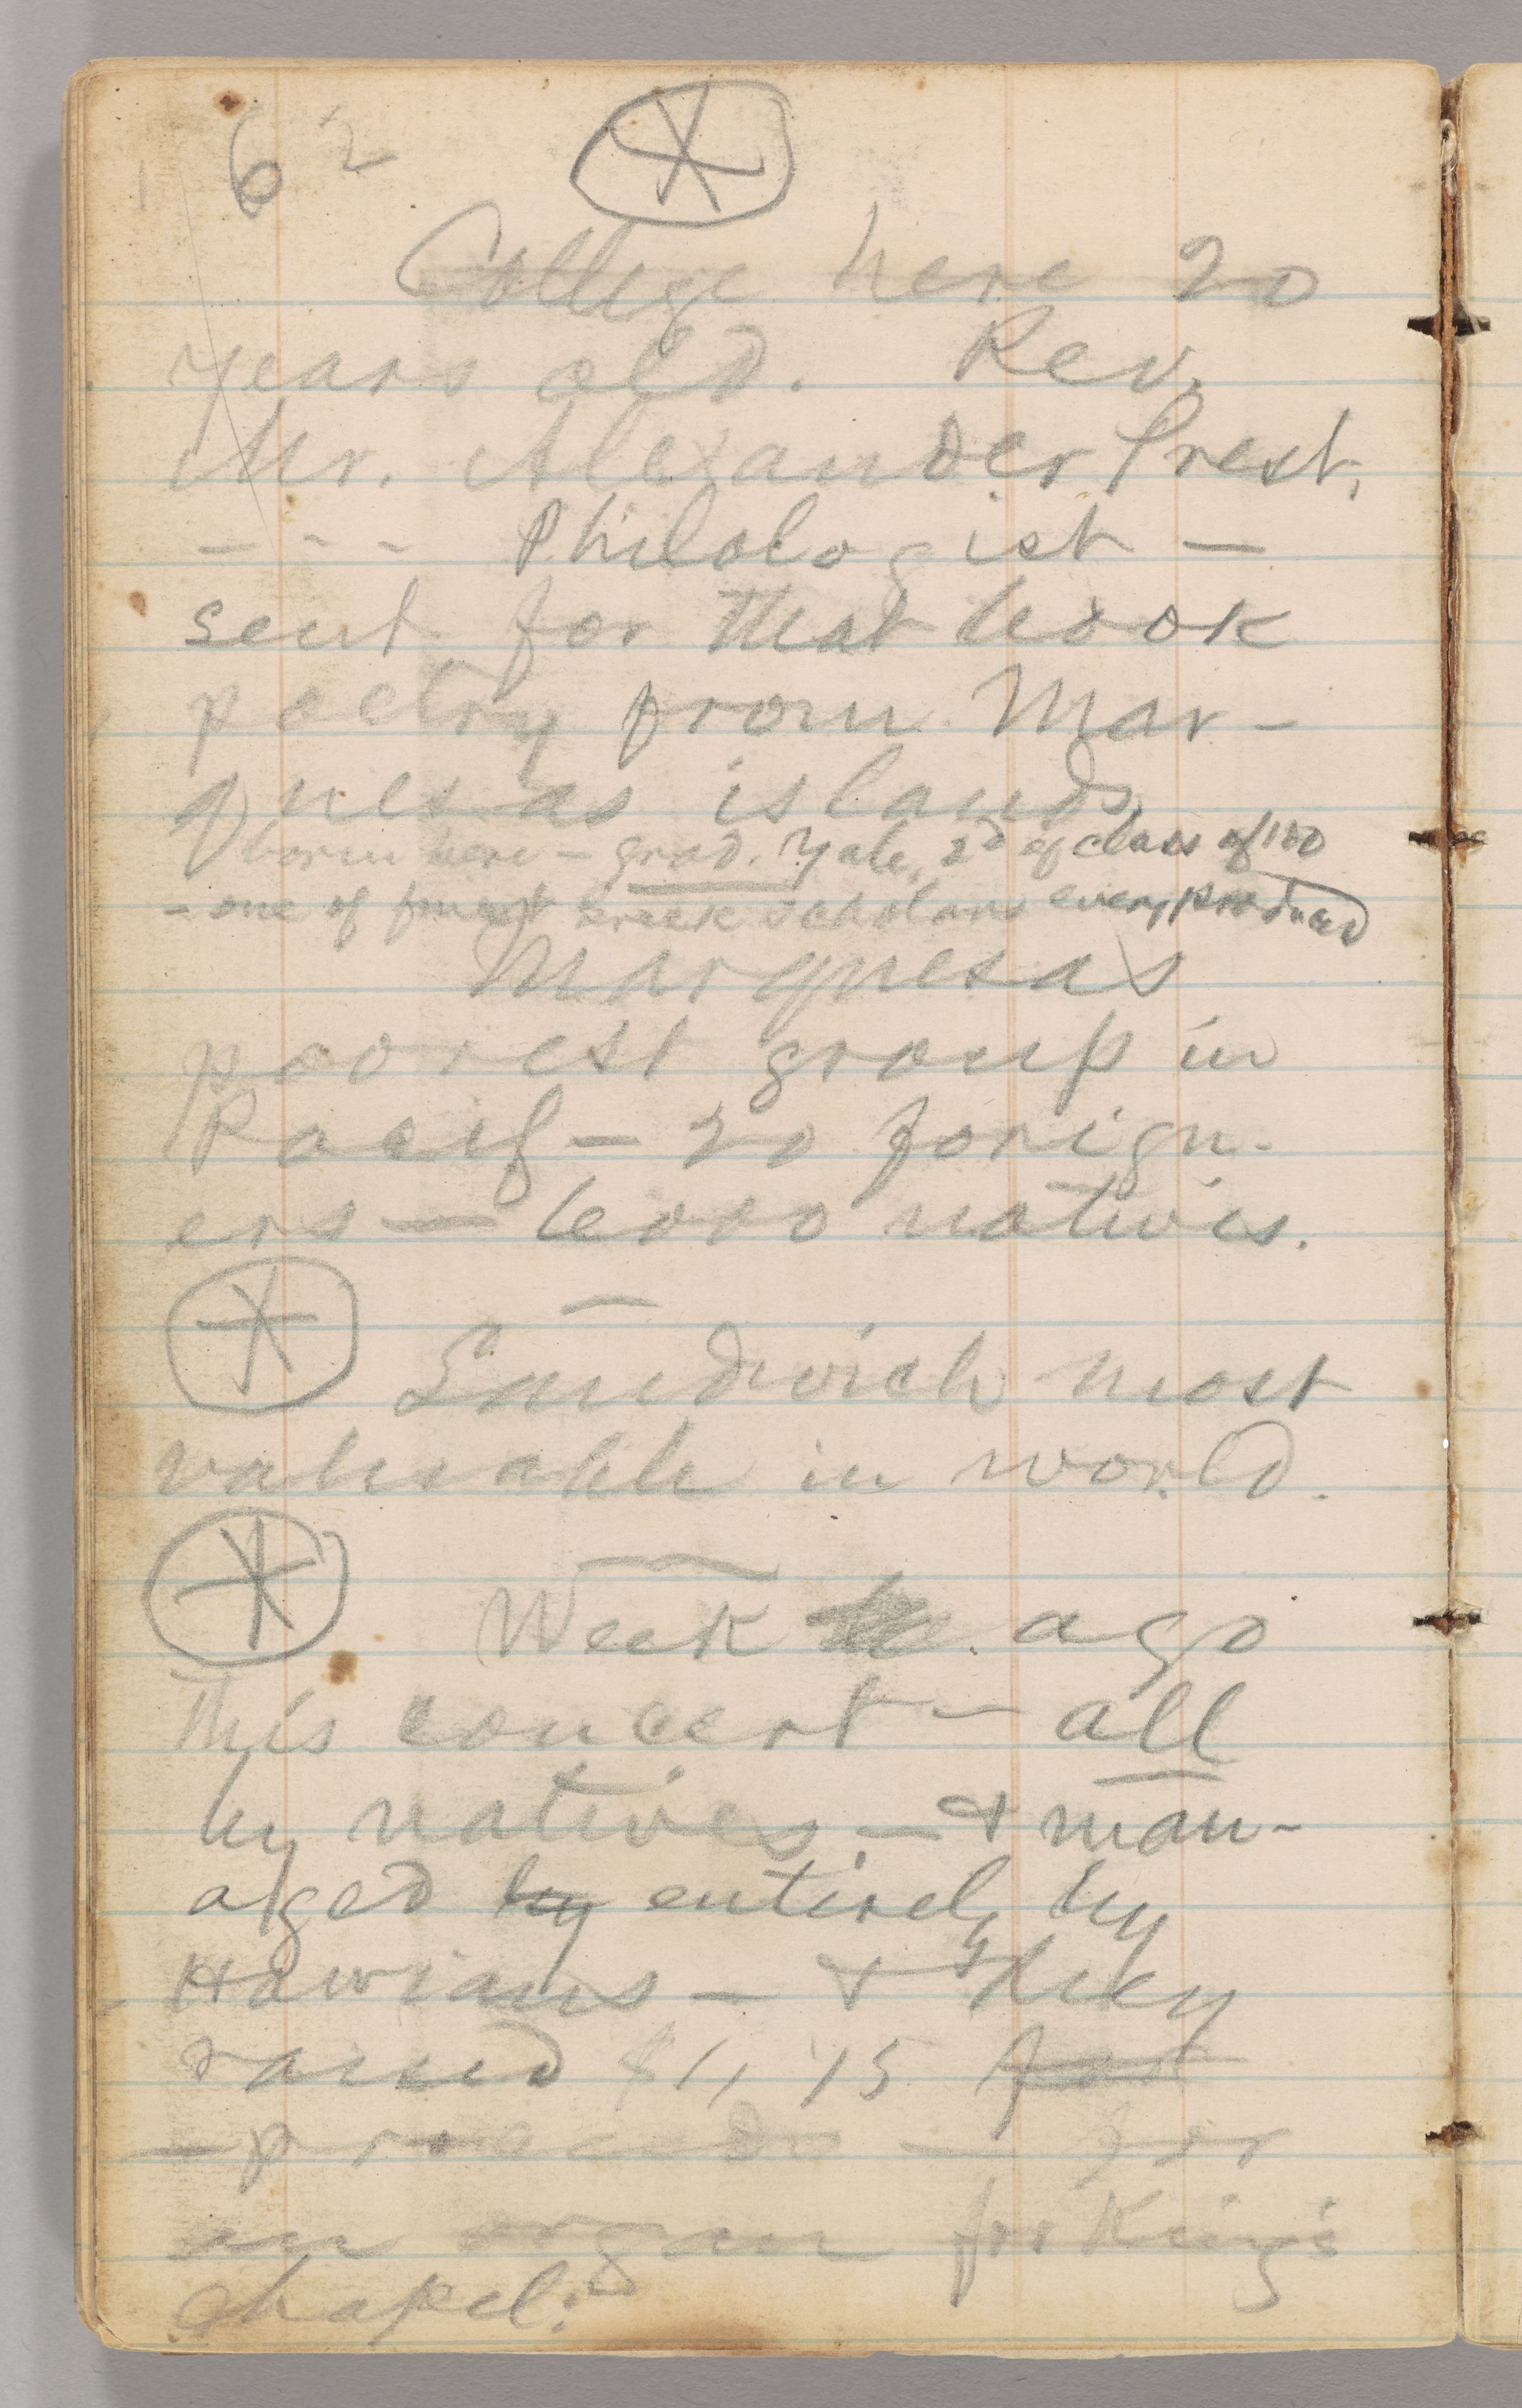 62
College here 20
years old. Rev.
Mr. Alexander Prest.
- - - Philologist —
sent for that book
poetry from Mar-
quesas islands
born here — grad. Yale, 2d of class of 100
- one of finest Greek scholars ever produced
Marquesas
poorest group in
Pacif — 20 foreign-
ers — 6000 natives.
Sandwich most
valuable in world.
Week ago
this concert — all
by natives — & man-
aged by entirely by
Hawians — & they
raised $1,
— proceeds — for
an organ for King's
chapel.